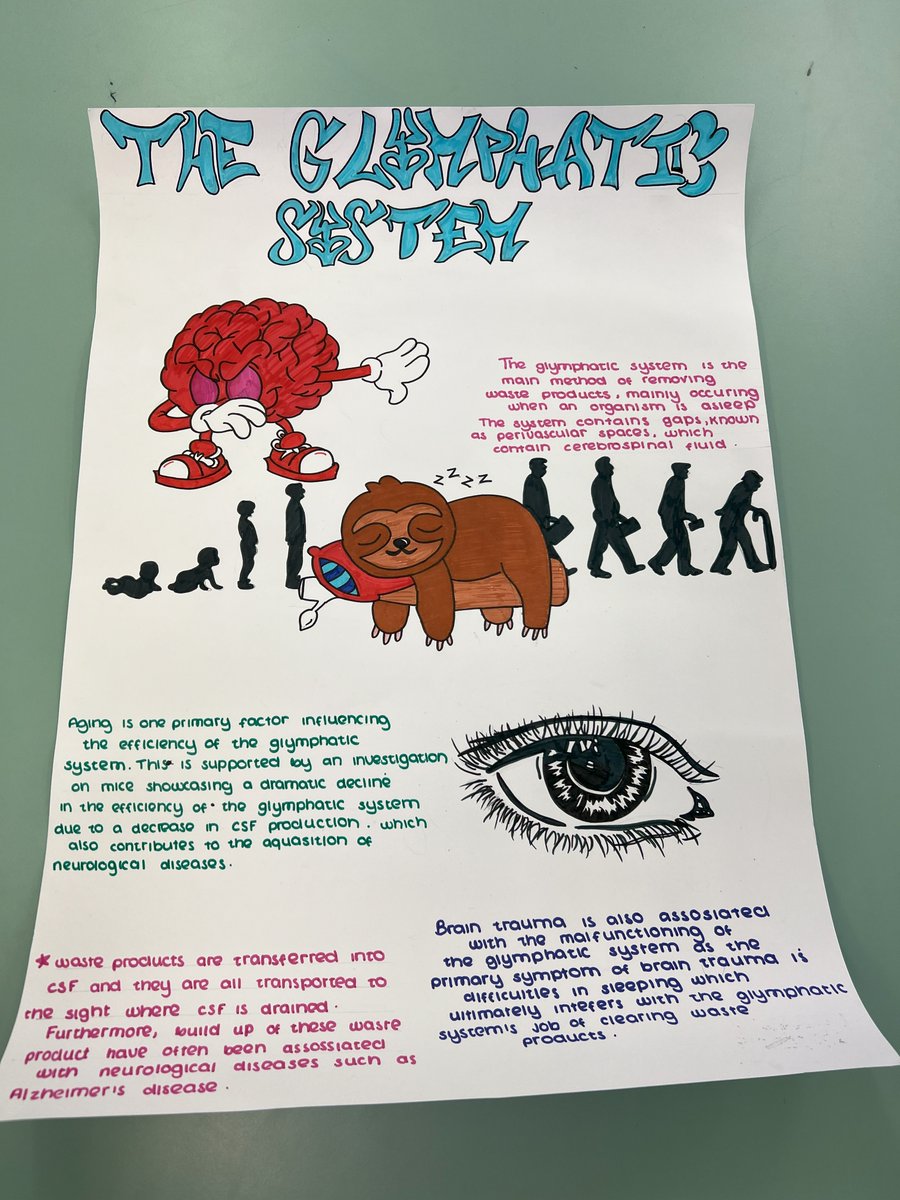 THE GLYMPHATIC
SYSTEM
The glymphatic system is the
main method of removing
waste products, mainly occuring
when an organism is asleep
The system contains gaps, known
as perivascular spaces, which
contain cerebrospinal fluid.
zzzz
Aging is one primary factor influencing
the efficiency of the glymphatic
system. This is supported by an investigation
on mice showcasing a dramatic decline
in the efficiency of the glymphatic system
due to a decrease in CSF production. which
also contributes to the aquasition of
neurological diseases.
Brain trauma is also assosiated
with the malfunctioning of
the glymphatic system as the
primary symptom of brain trauma is
difficulties in sleeping which
ultimately intefers with the glymphatic
system's job of clearing waste
products.
* waste products are transferred into
CSF and they are all transported to
the sight where CSF is drained.
Furthermore, build up of these waste
product have often been assossiated
with neurological diseases such as
Alzheimer's disease.